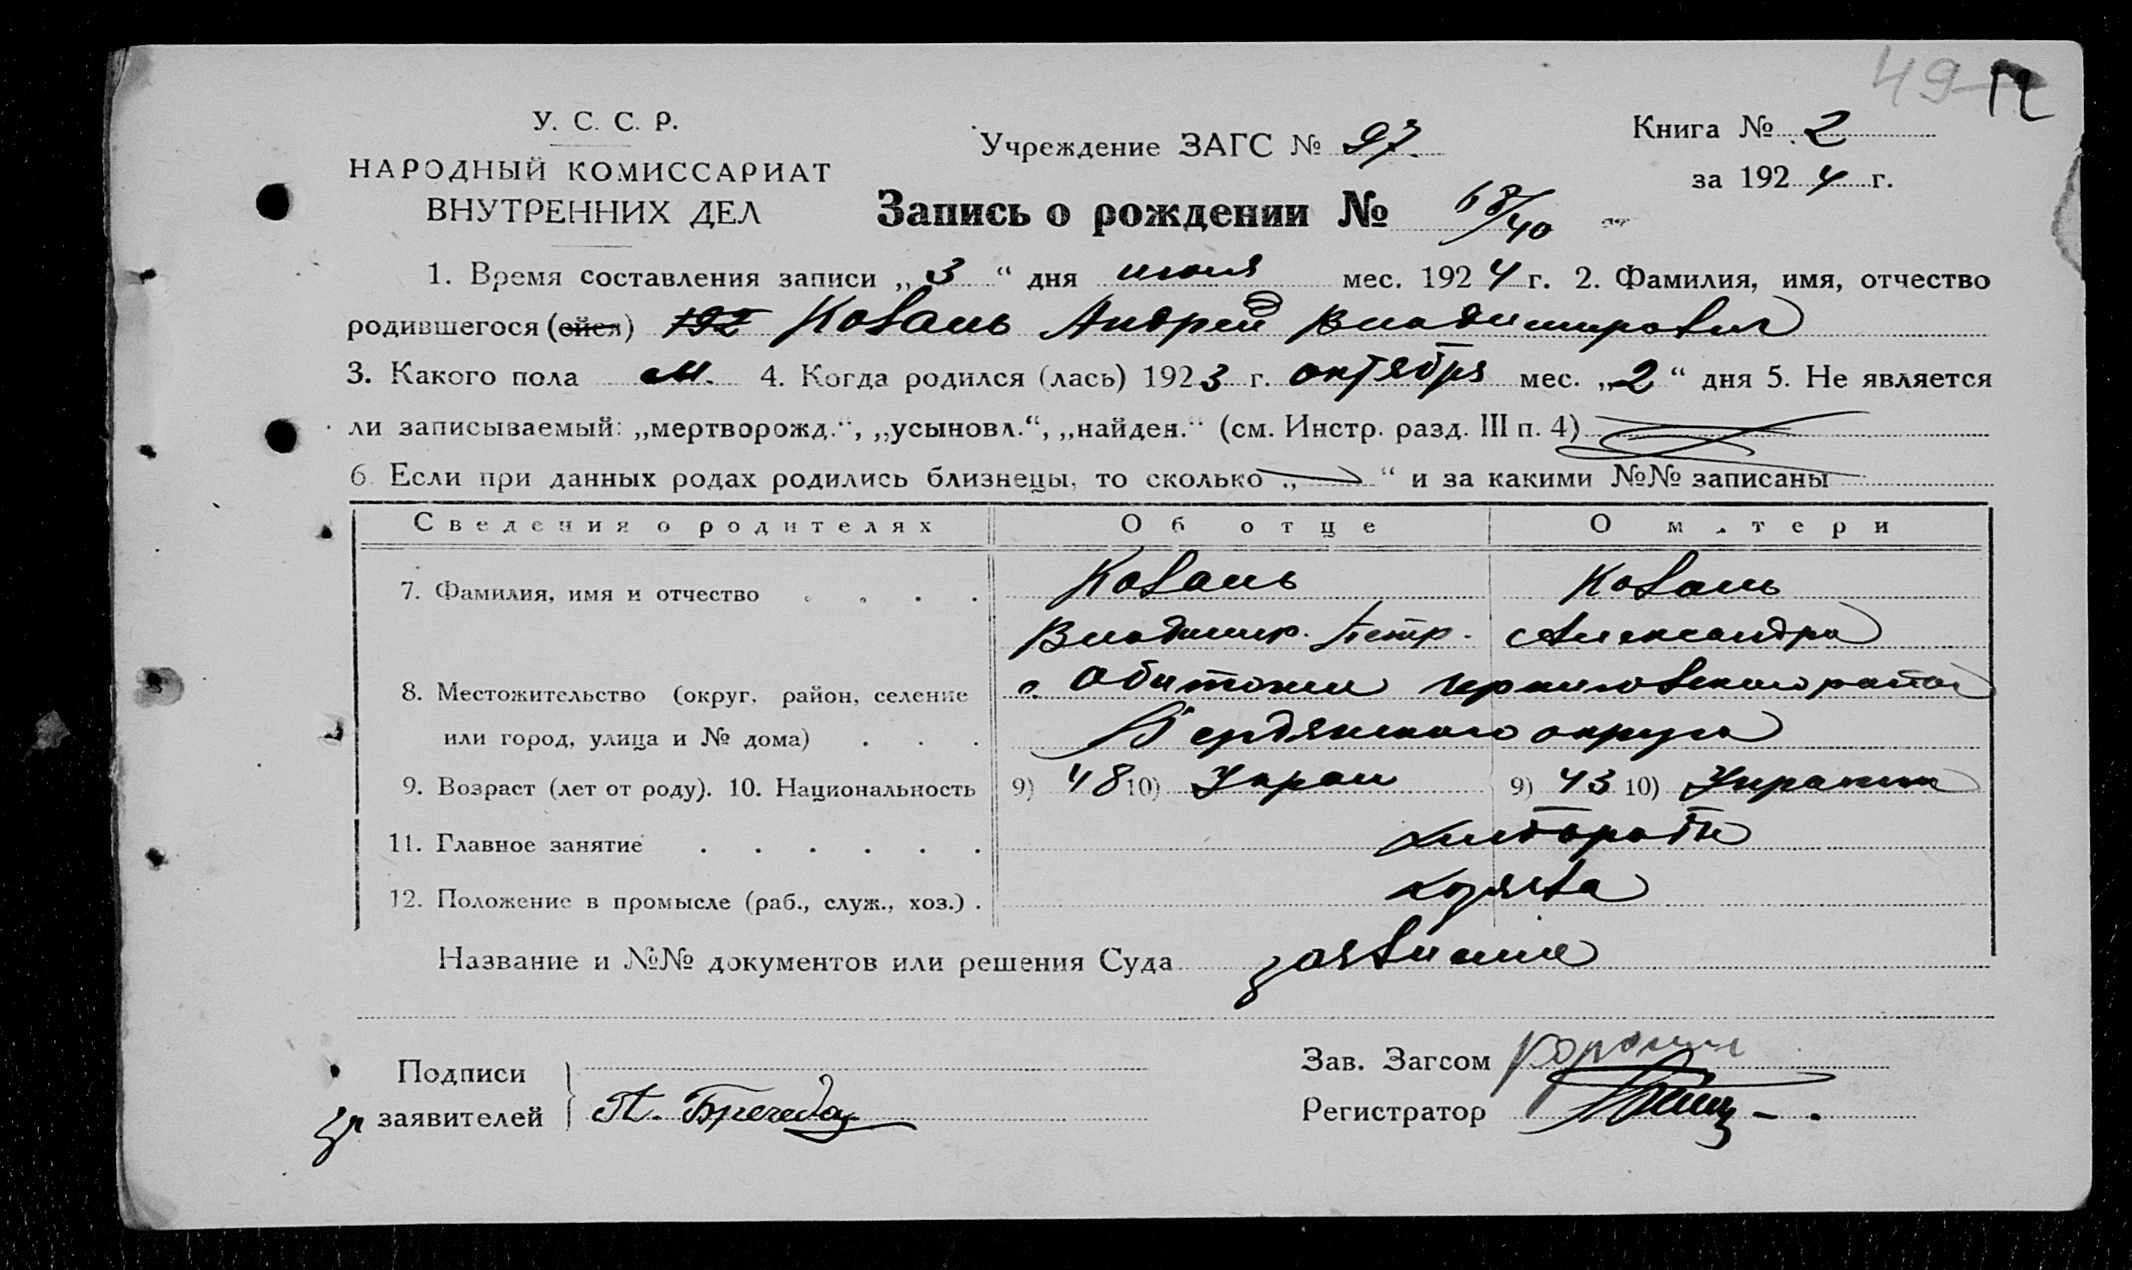 49 12
У. С. С. Р.
НАРОДНЫЙ КОМИССАРИАТ
ВНУТРЕННИХ ДЕЛ
Учреждение ЗАГС № 97
Книга № 2
за 1924 г.
Запись о рождении № 68/40
1. Время составления записи „3“ дня июня мес. 1924 г. 2. Фамилия, имя, отчество
родившегося (ейся) 192 Коваль Андрей Владимирович
3. Какого пола м. 4. Когда родился (лась) 1923 г. октября мес. „2“ дня 5. Не является
ли записываемый: „мертворожд.“, „усыновл.“, „найден.“ (см. Инстр. разд. III п. 4)
6. Если при данных родах родились близнецы, то сколько „—“ и за какими №№ записаны
Сведения о родителях Об отце О матери
7. Фамилия, имя и отчество . . . . Коваль Коваль
Владимир. Петр. Александра
8. Местожительство (округ, район, селение с. Обиточни
или город, улица и № дома) . . . Бердянского округа
9. Возраст (лет от роду). 10. Национальность 9) 48 10) Украи 9) 43 10)
11. Главное занятие . . . . . . хлебороб
12. Положение в промысле (раб., служ., хоз.) . хозяева
Название и №№ документов или решения Суда заявление
Подписи
заявителей П.
Зав. Загсом
Регистратор